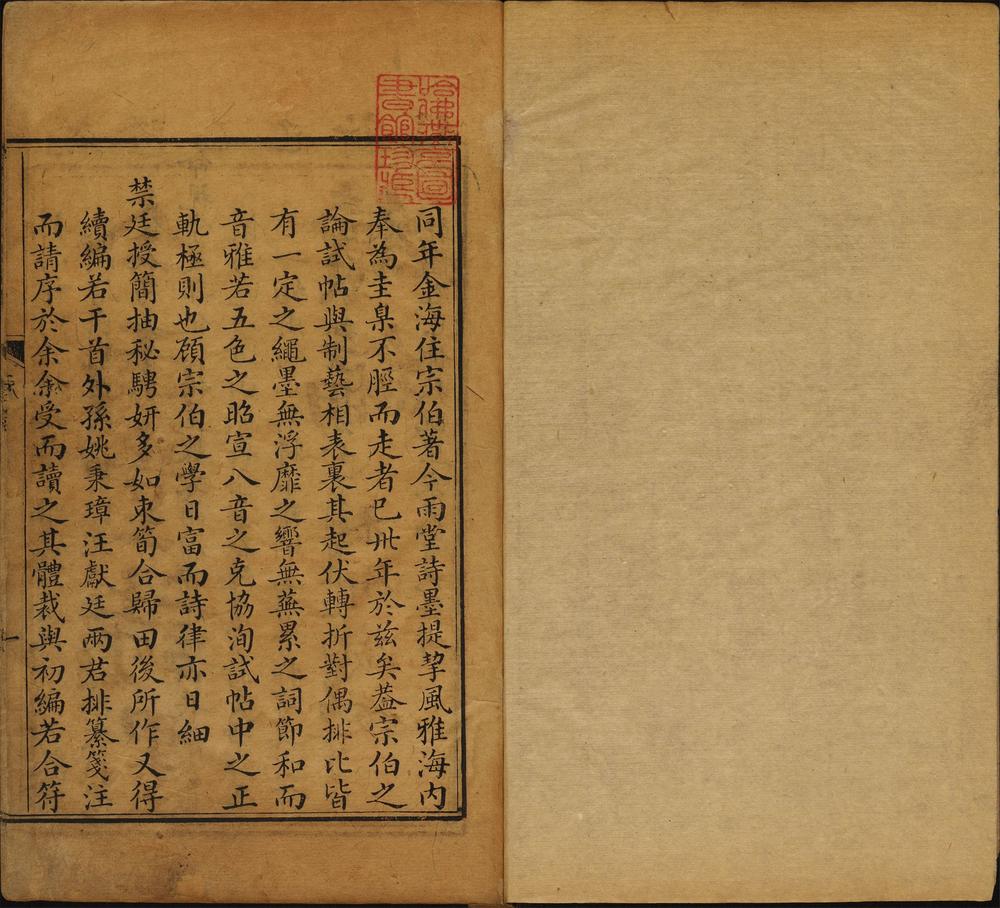 哈佛燕京圖
書館珍藏
同年金海住宗伯著今雨堂詩墨提挈風雅海内
奉為圭臬不脛而走者已卅年於兹矣葢宗伯之
論試帖與制藝相表裏其起伏轉折對偶排比皆
有一定之繩墨無浮靡之響無蕪累之詞節和而
音雅若五色之昭宣八音之克協洵試帖中之正
軌極則也顧宗伯之學日富而詩律亦日細
禁廷授簡抽秘騁妍多如束筍合歸田後所作又得
續編若干首外孫姚秉璋汪獻廷兩君排纂箋注
而請序於余余受而讀之其體裁與初編若合符
一